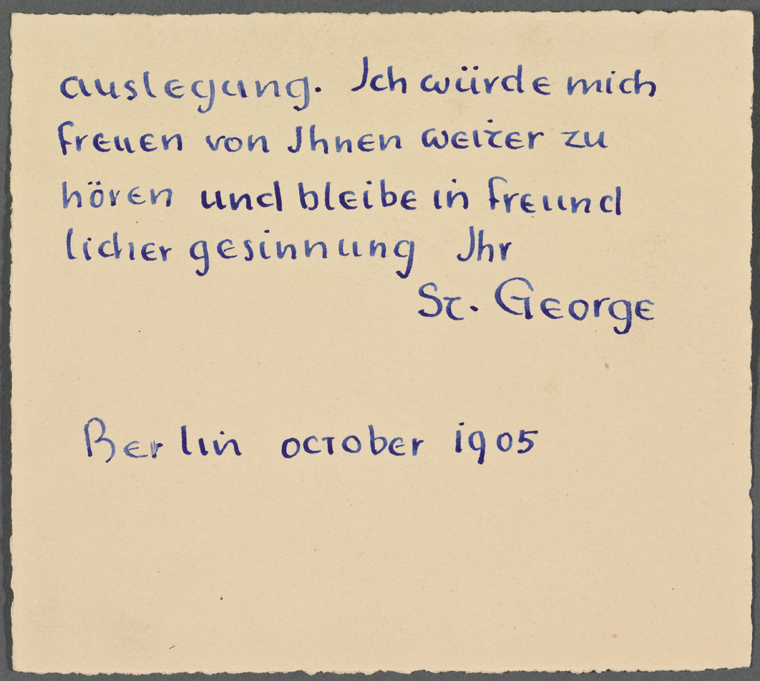 auslegung. Ich würde mich
freuen von Ihnen weiter zu
hören und bleibe in freund
licher gesinnung Ihr
St. George
Berlin october 1905